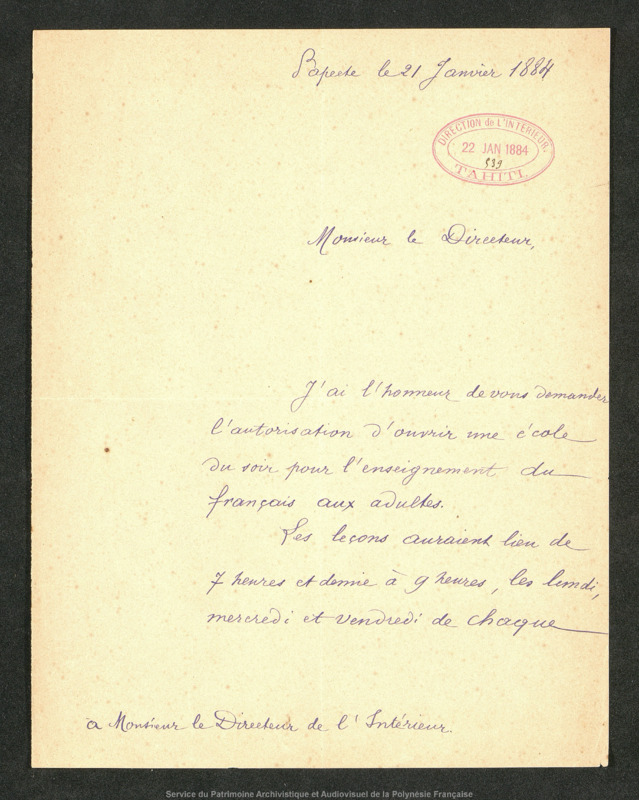 Papeete le 21 Janvier 1884
DIRECTION de L'INTERIEUR.
22 JAN 1884
539
TAHITI.
Monsieur le Directeur,
J'ai l'honneur de vous demander
l'autorisation d'ouvrir une école
du soir pour l'enseignement du
français aux adultes.
Les leçons auraient lieu de
7 heures et demie à 9 heures, les lundi,
mercredi et vendredi de chaque
a Monsieur le Directeur de l'Intérieur.
Service du Patrimoine Archivistique et Audiovisuel de la Polynésie Française